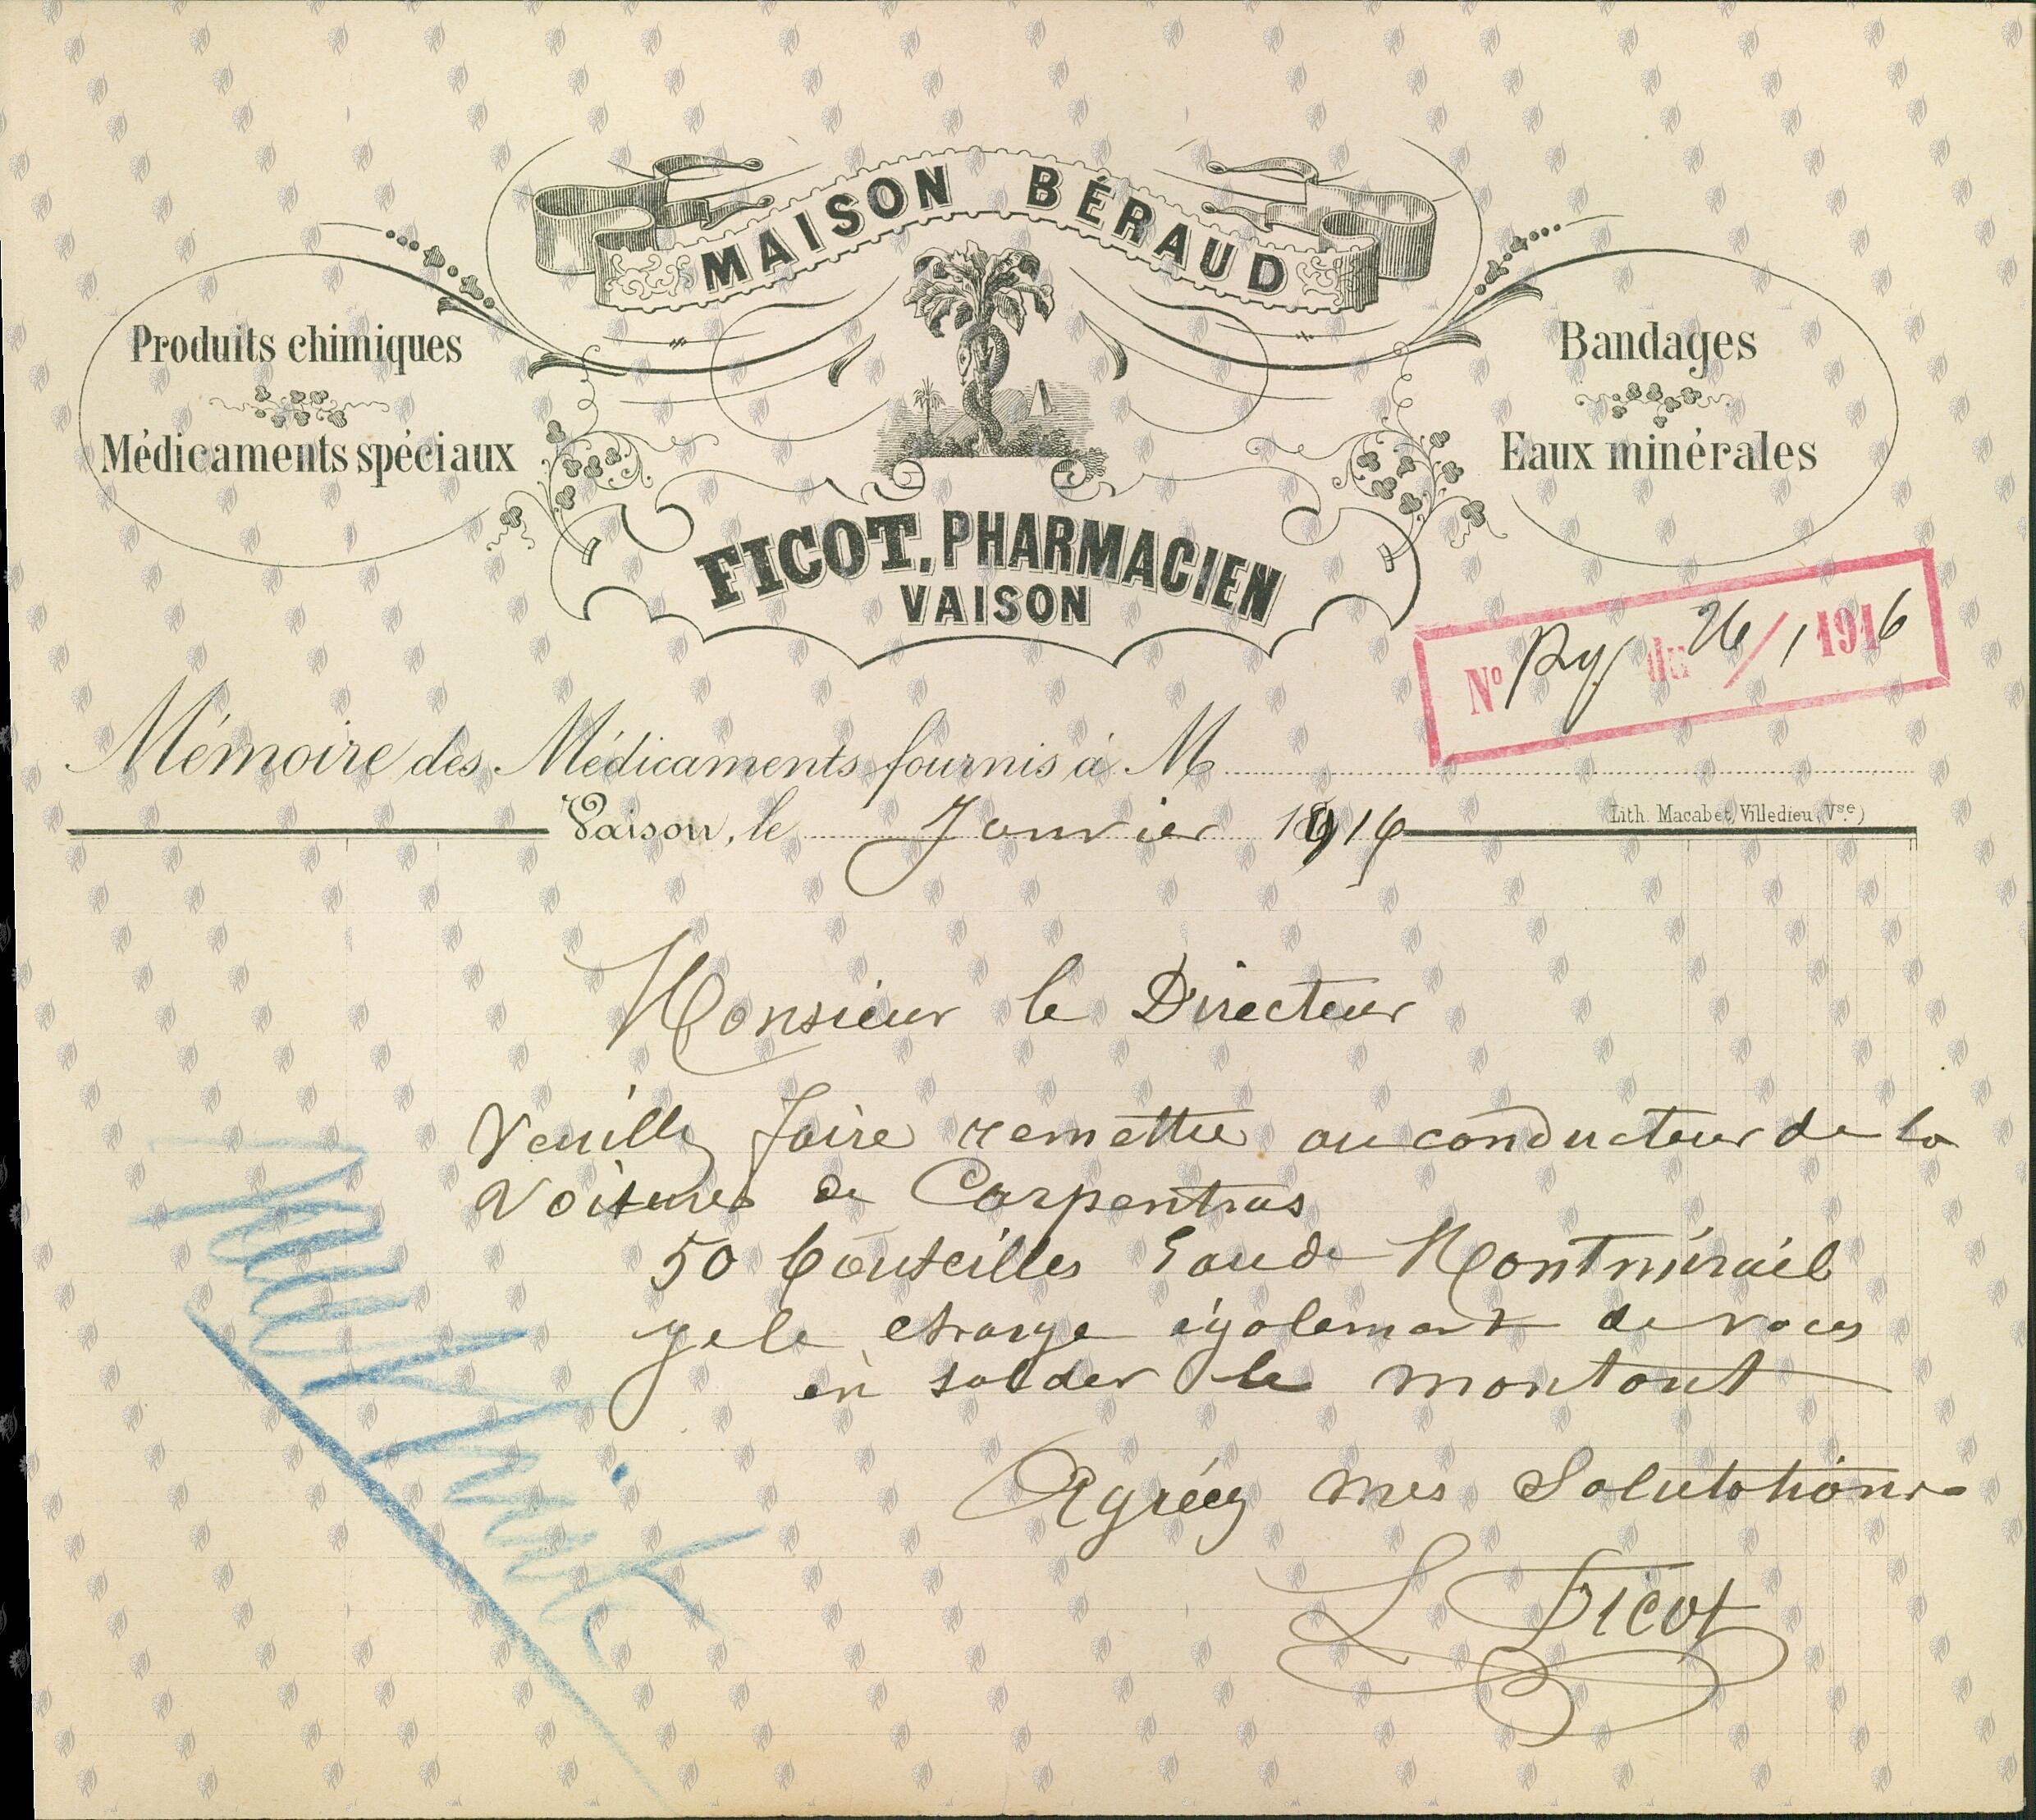 MAISON BÉRAUD
Produits chimiques
Médicaments spéciaux
Bandages
Eaux minérales
FICOT, PHARMACIEN
VAISON
N° Ry du 26/1 1916
Mémoire des Médicaments fournis à M
Vaison, le Janvier 1916
Lith. Macabet, Villedieu (Vse)
Monsieur le Directeur
Veuillez faire remettre au conducteur de la
voiture de Carpentras
50 bouteilles Eau de Montmirail
je le charge également de vous
en solder le montant
Agréez mes Salutations
L Ficot